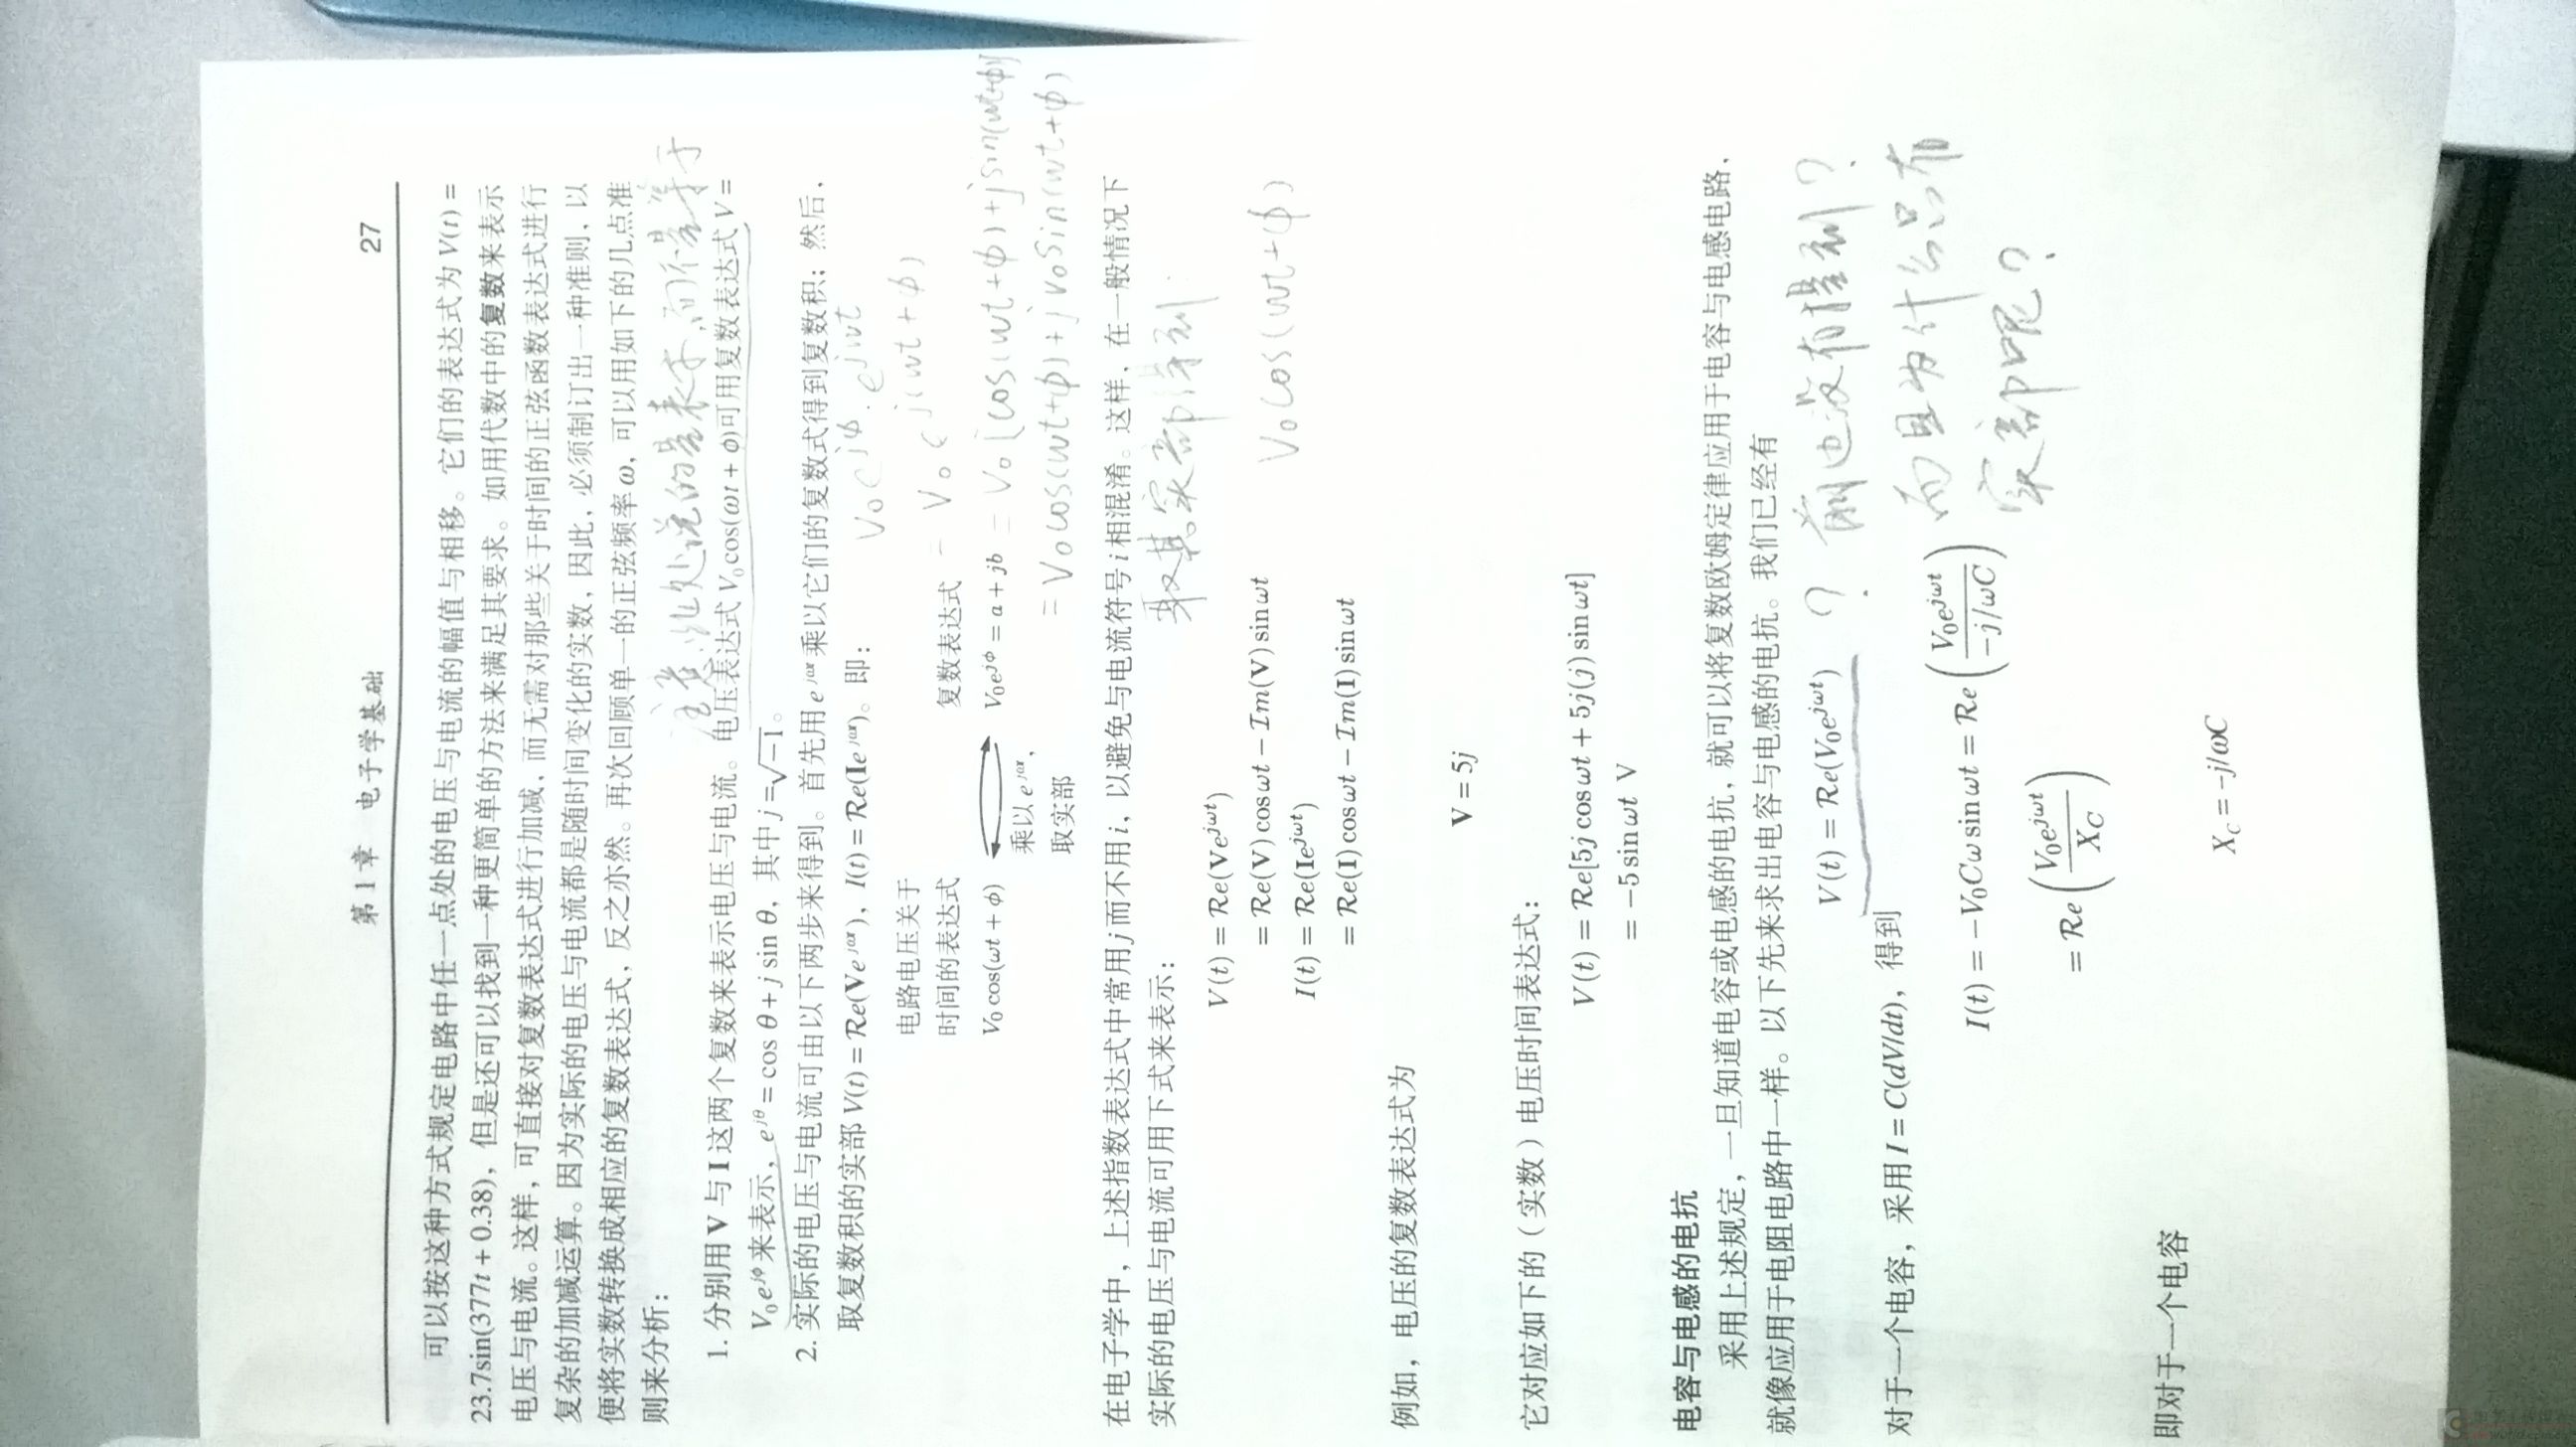 第1章 电子学基础 27
可以按这种方式规定电路中任一点处的电压与电流的幅值与相移。它们的表达式为 V(t) =
23.7sin(377t + 0.38)，但是还可以找到一种更简单的方法来满足其要求。如用代数中的复数来表示
电压与电流。这样，可直接对复数表达式进行加减，而无需对那些关于时间的正弦函数表达式进行
复杂的加减运算。因为实际的电压与电流都是随时间变化的实数，因此，必须制订出一种准则，以
便将实数转换成相应的复数表达式，反之亦然。再次回顾单一的正弦频率 ω，可以用如下的几点准
则来分析：
注意此处说的是表示，而不是等于
1. 分别用 V 与 I 这两个复数来表示电压与电流。电压表达式 V₀cos(ωt + ϕ)可用复数表达式 V =
V₀e^{jϕ}来表示，e^{jθ} = cos θ + j sin θ，其中 j = √−1。
2. 实际的电压与电流可由以下两步来得到。首先用 e^{jωt}乘以它们的复数式得到复数积；然后，
取复数积的实部 V(t) = Re(Ve^{jωt})，I(t) = Re(Ie^{jωt})。即：
V₀e^{jϕ}·e^{jωt}
电路电压关于
时间的表达式
复数表达式
= V₀e^{j(ωt+ϕ)}
V₀cos(ωt + ϕ)
V₀e^{jϕ} = a + jb
= V₀[cos(ωt+ϕ)+jsin(ωt+ϕ)]
乘以 e^{jωt}，
取实部
= V₀cos(ωt+ϕ)+jV₀sin(ωt+ϕ)
在电子学中，上述指数表达式中常用 j 而不用 i，以避免与电流符号 i 相混淆。这样，在一般情况下
实际的电压与电流可用下式来表示：
取其实部得到
V(t) = Re(Ve^{jωt})
V₀cos(ωt+ϕ)
= Re(V) cos ωt − Im(V) sin ωt
I(t) = Re(Ie^{jωt})
= Re(I) cos ωt − Im(I) sin ωt
例如，电压的复数表达式为
V = 5j
它对应如下的（实数）电压时间表达式：
V(t) = Re[5j cos ωt + 5j(j) sin ωt]
= −5 sin ωt V
电容与电感的电抗
采用上述规定，一旦知道电容或电感的电抗，就可以将复数欧姆定律应用于电容与电感电路，
就像应用于电阻电路中一样。以下先来求出电容与电感的电抗。我们已经有
V(t) = Re(V₀e^{jωt})
? 前边没有提到？
对于一个电容，采用 I = C(dV/dt)，得到
而且为什么只有
I(t) = −V₀Cω sin ωt = Re(V₀e^{jωt}/−j/ωC)
实部呢？
= Re(V₀e^{jωt}/X_C)
即对于一个电容
X_C = −j/ωC